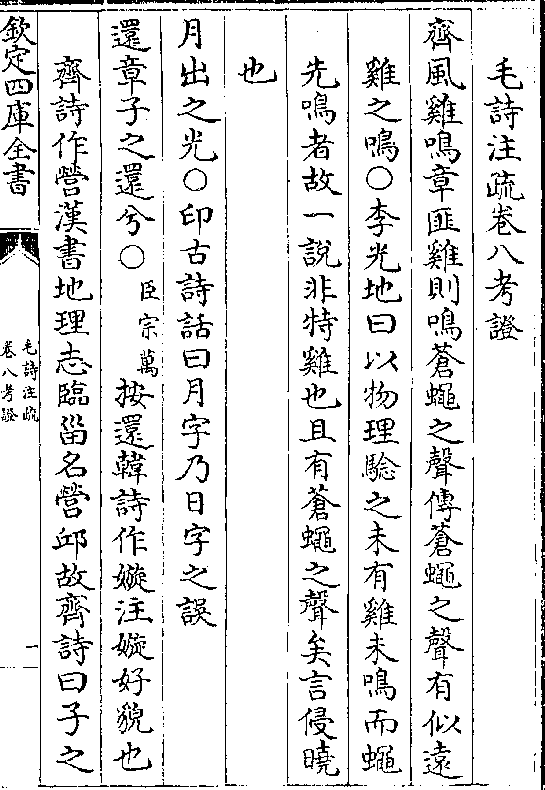 毛詩注疏卷八考證
齊風雞鳴章匪雞則鳴蒼蠅之聲傳蒼蠅之聲有似遠
雞之鳴○李光地曰以物理驗之未有雞未鳴而蠅
先鳴者故一說非特雞也且有蒼蠅之聲矣言侵曉
也
月出之光○印古詩話曰月字乃日字之誤
還章子之還兮○臣宗萬按還韓詩作嫙注嫙好貌也
齊詩作營漢書地理志臨甾名營邱故齊詩曰子之
欽定四庫全書
毛詩注疏
卷八考證
一